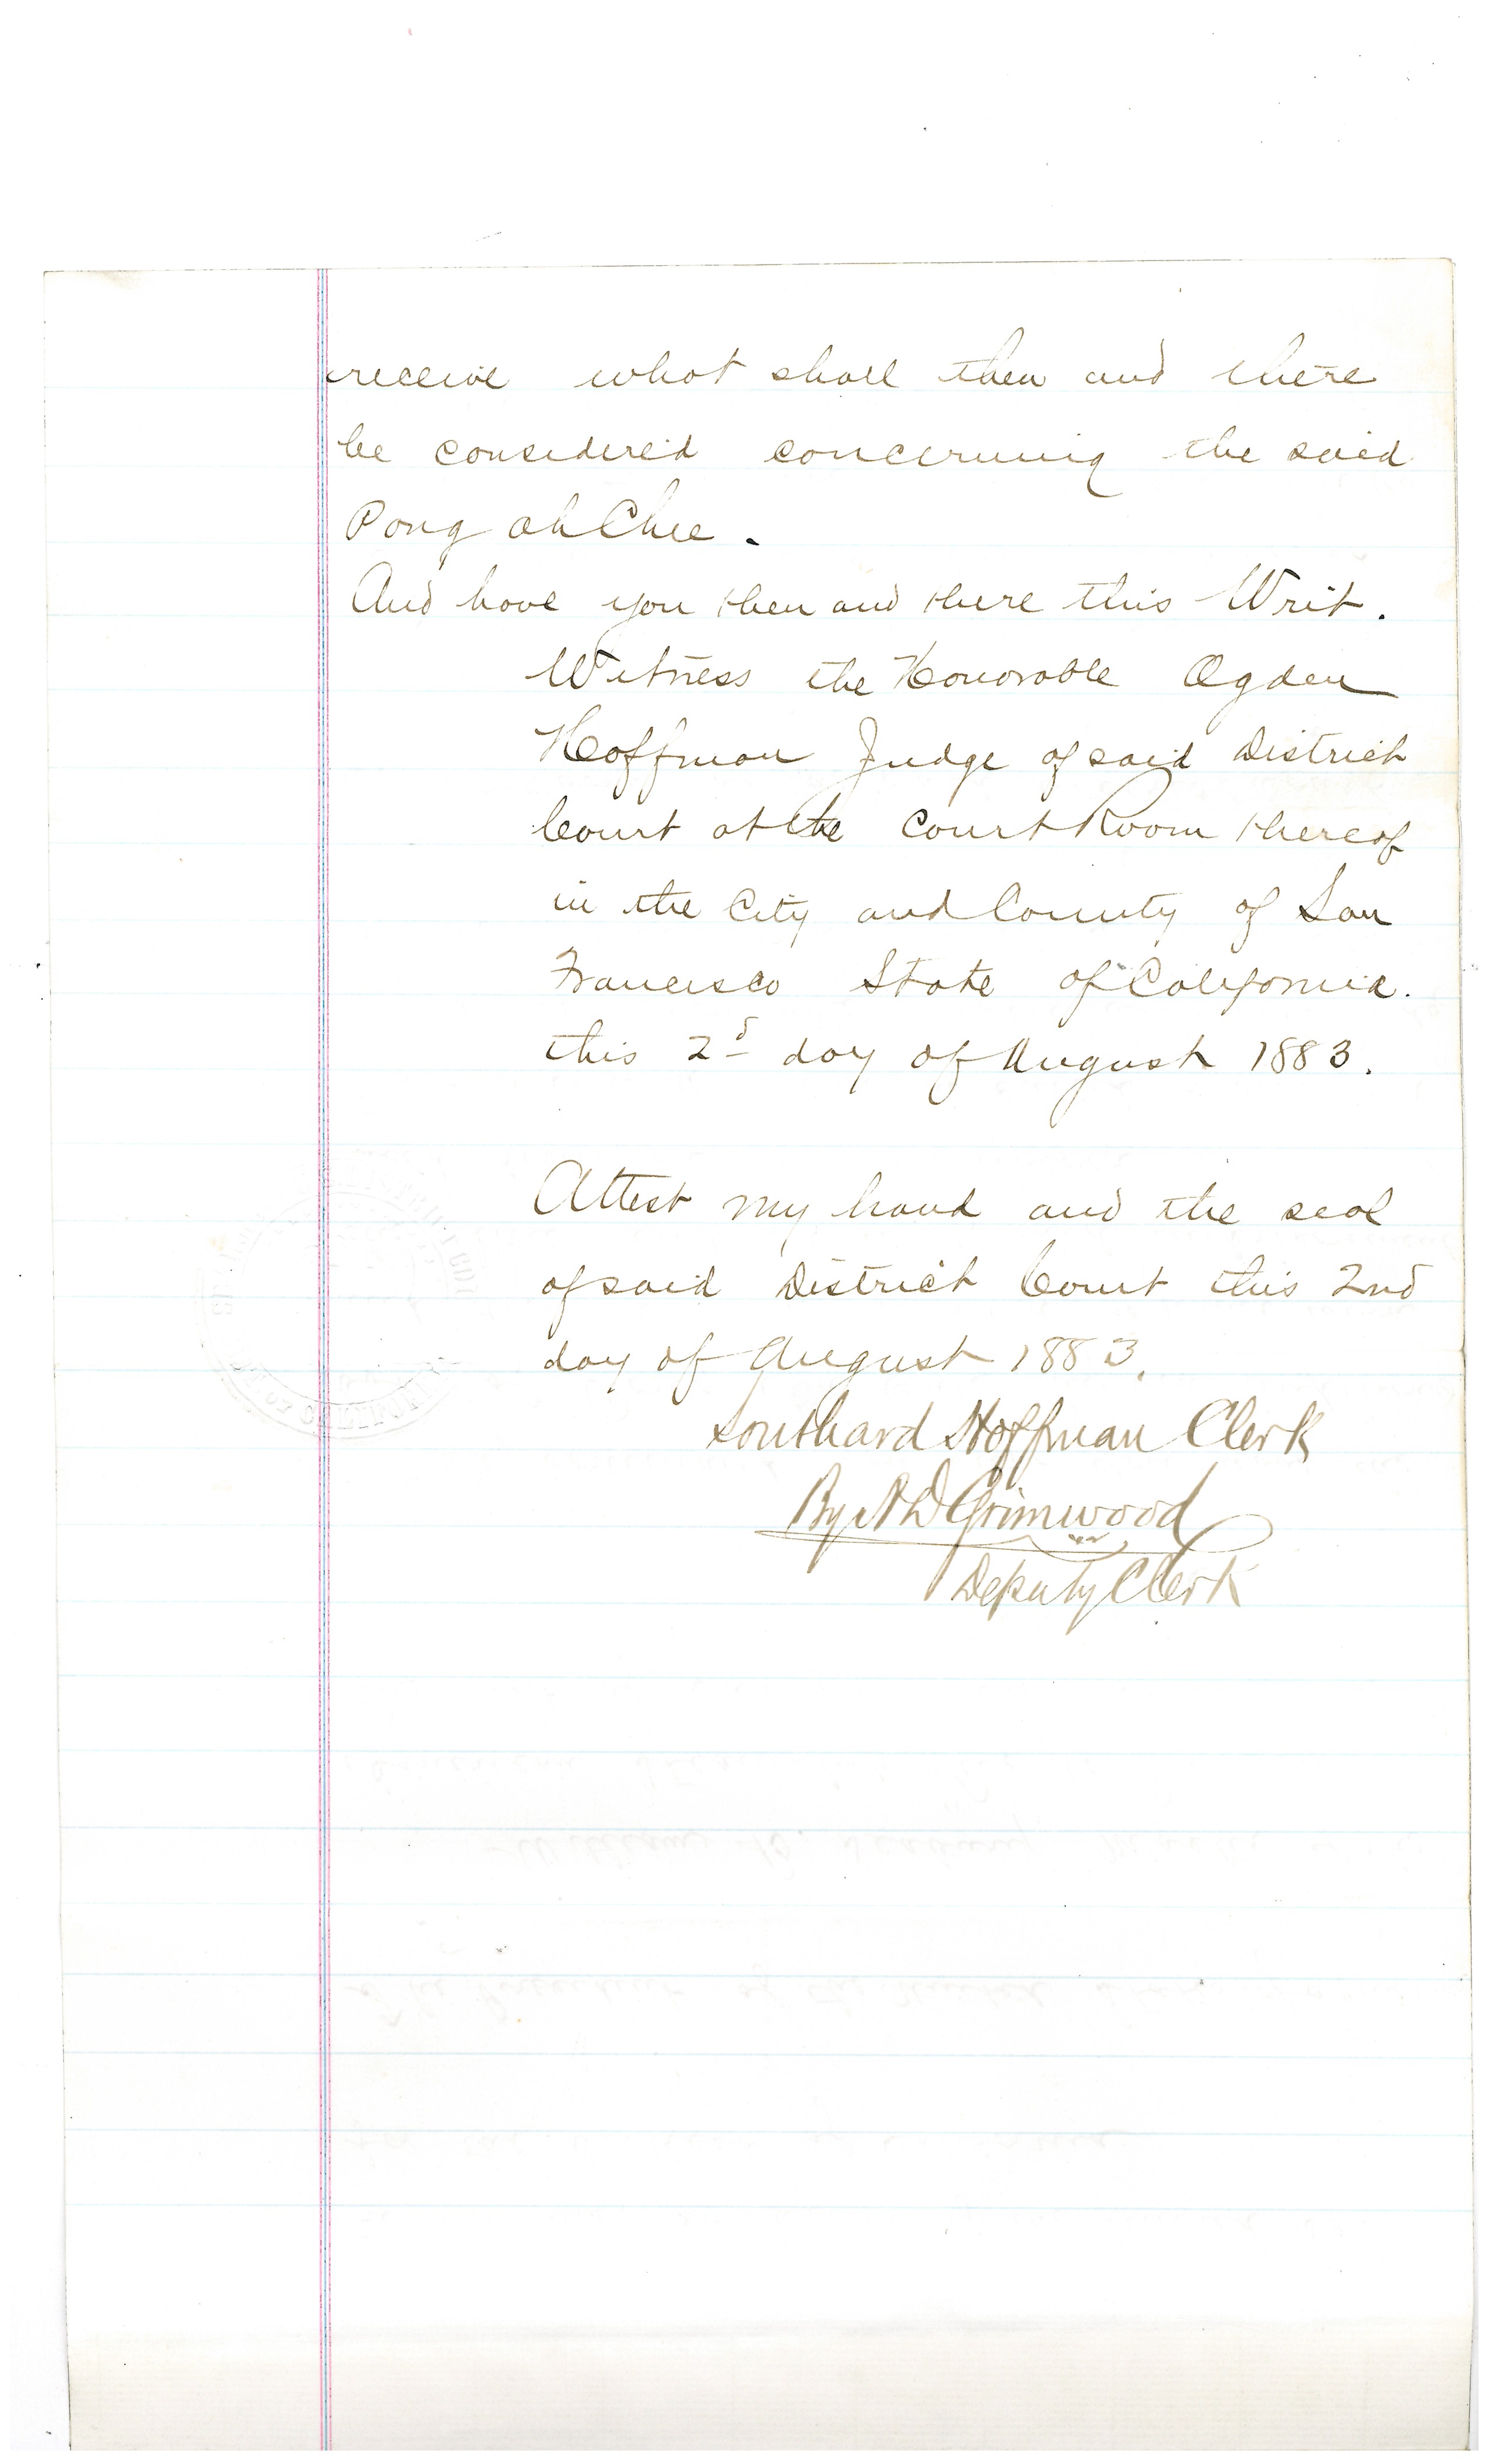 receive what shall then and there
be considered concerning the said
Pong ah Chee.
And have you then and there this Writ.
Witness the Honorable Ogden
Hoffman Judge of said District
Court at the Court Room thereof
in the City and County of San
Francisco State of California.
this 2d day of August 1883.
Attest my hand and the seal
of said District Court this 2nd
day of August 1883.
Southard Hoffman Clerk
By A D Grimwood
Deputy Clerk